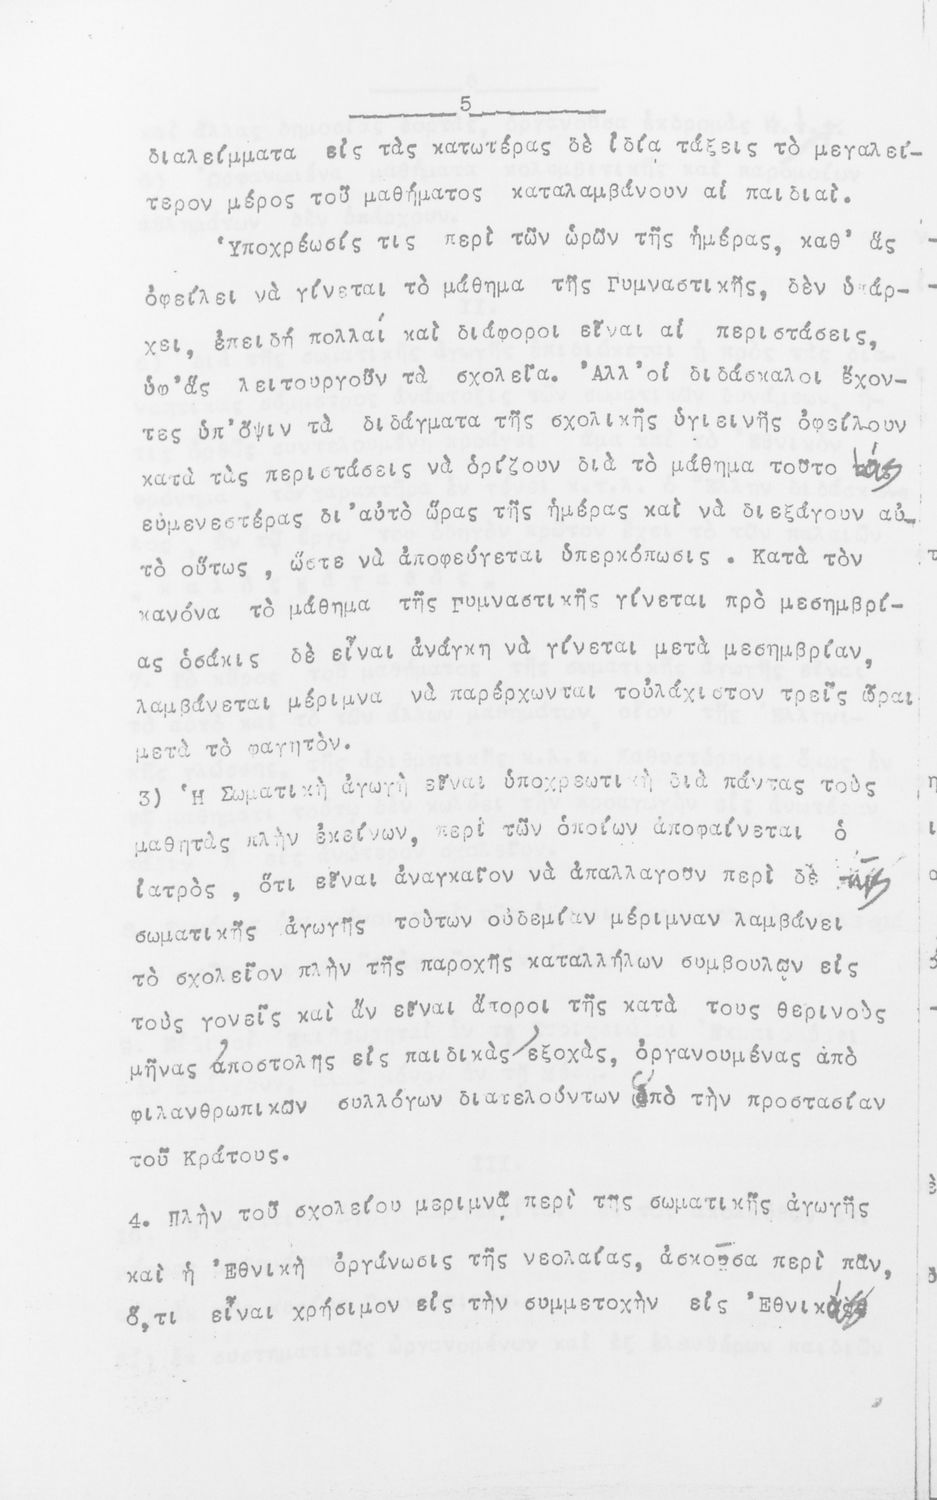 5
διαλείμματα εἰς τὰς κατωτέρας δὲ ἰδίᾳ τάξεις τὸ μεγαλεί-
τερον μέρος τοῦ μαθήματος καταλαμβάνουν αἱ παιδιαὶ.
Ὑποχρέωσίς τις περὶ τῶν ὡρῶν τῆς ἡμέρας, καθ' ἅς
ὀφείλει νὰ γίνεται τὸ μάθημα τῆς Γυμναστικῆς, δὲν ὑπάρ-
χει, ἐπειδή πολλαί καὶ διάφοροι εἶναι αἱ περιστάσεις,
ὑφ'ἅς λειτουργοῦν τὰ σχολεῖα. Ἀλλ'οἱ διδάσκαλοι ἔχον-
τες ὑπ'ὄψιν τὰ διδάγματα τῆς σχολικῆς ὑγιεινῆς ὀφείλουν
κατὰ τὰς περιστάσεις νὰ ὁρίζουν διὰ τὸ μάθημα τοῦτο τάς
εὐμενεστέρας δι'αὐτὸ ὥρας τῆς ἡμέρας καὶ νὰ διεξάγουν αὐ-
τὸ οὕτως, ὥστε νὰ ἀποφεύγεται ὑπερκόπωσις. Κατὰ τὸν
κανόνα τὸ μάθημα τῆς Γυμναστικῆς γίνεται πρὸ μεσημβρί-
ας ὁσάκις δὲ εἶναι ἀνάγκη νὰ γίνεται μετὰ μεσημβρίαν,
λαμβάνεται μέριμνα νὰ παρέρχωνται τοὐλάχιστον τρεῖς ὧραι
μετὰ τὸ φαγητὸν.
3) Ἡ Σωματικὴ ἀγωγὴ εἶναι ὑποχρεωτικὴ διὰ πάντας τοὺς
μαθητὰς πλὴν ἐκείνων, περὶ τῶν ὁποίων ἀποφαίνεται ὁ
ἰατρὸς, ὅτι εἶναι ἀναγκαῖον νὰ ἀπαλλαγοῦν περὶ δὲ τῆς
σωματικῆς ἀγωγῆς τούτων οὐδεμίαν μέριμναν λαμβάνει
τὸ σχολεῖον πλὴν τῆς παροχῆς καταλλήλων συμβουλῶν εἰς
τοὺς γονεῖς καὶ ἄν εἶναι ἄποροι τῆς κατὰ τους θερινοὺς
μῆνας ἀποστολῆς εἰς παιδικὰς ἐξοχὰς, ὀργανουμένας ἀπὸ
φιλανθρωπικῶν συλλόγων διατελούντων ὑπὸ τὴν προστασίαν
τοῦ Κράτους.
4. Πλὴν τοῦ σχολείου μεριμνᾷ περὶ τῆς σωματικῆς ἀγωγῆς
καὶ ἡ Ἐθνικὴ ὀργάνωσις τῆς νεολαίας, ἀσκοῦσα περὶ πᾶν,
ὅ,τι εἶναι χρήσιμον εἰς τὴν συμμετοχὴν εἰς Ἐθνικάς